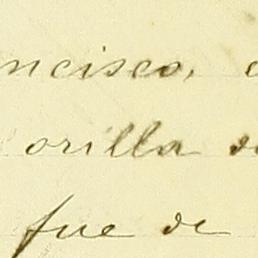 ncisco,
orilla de
fue de